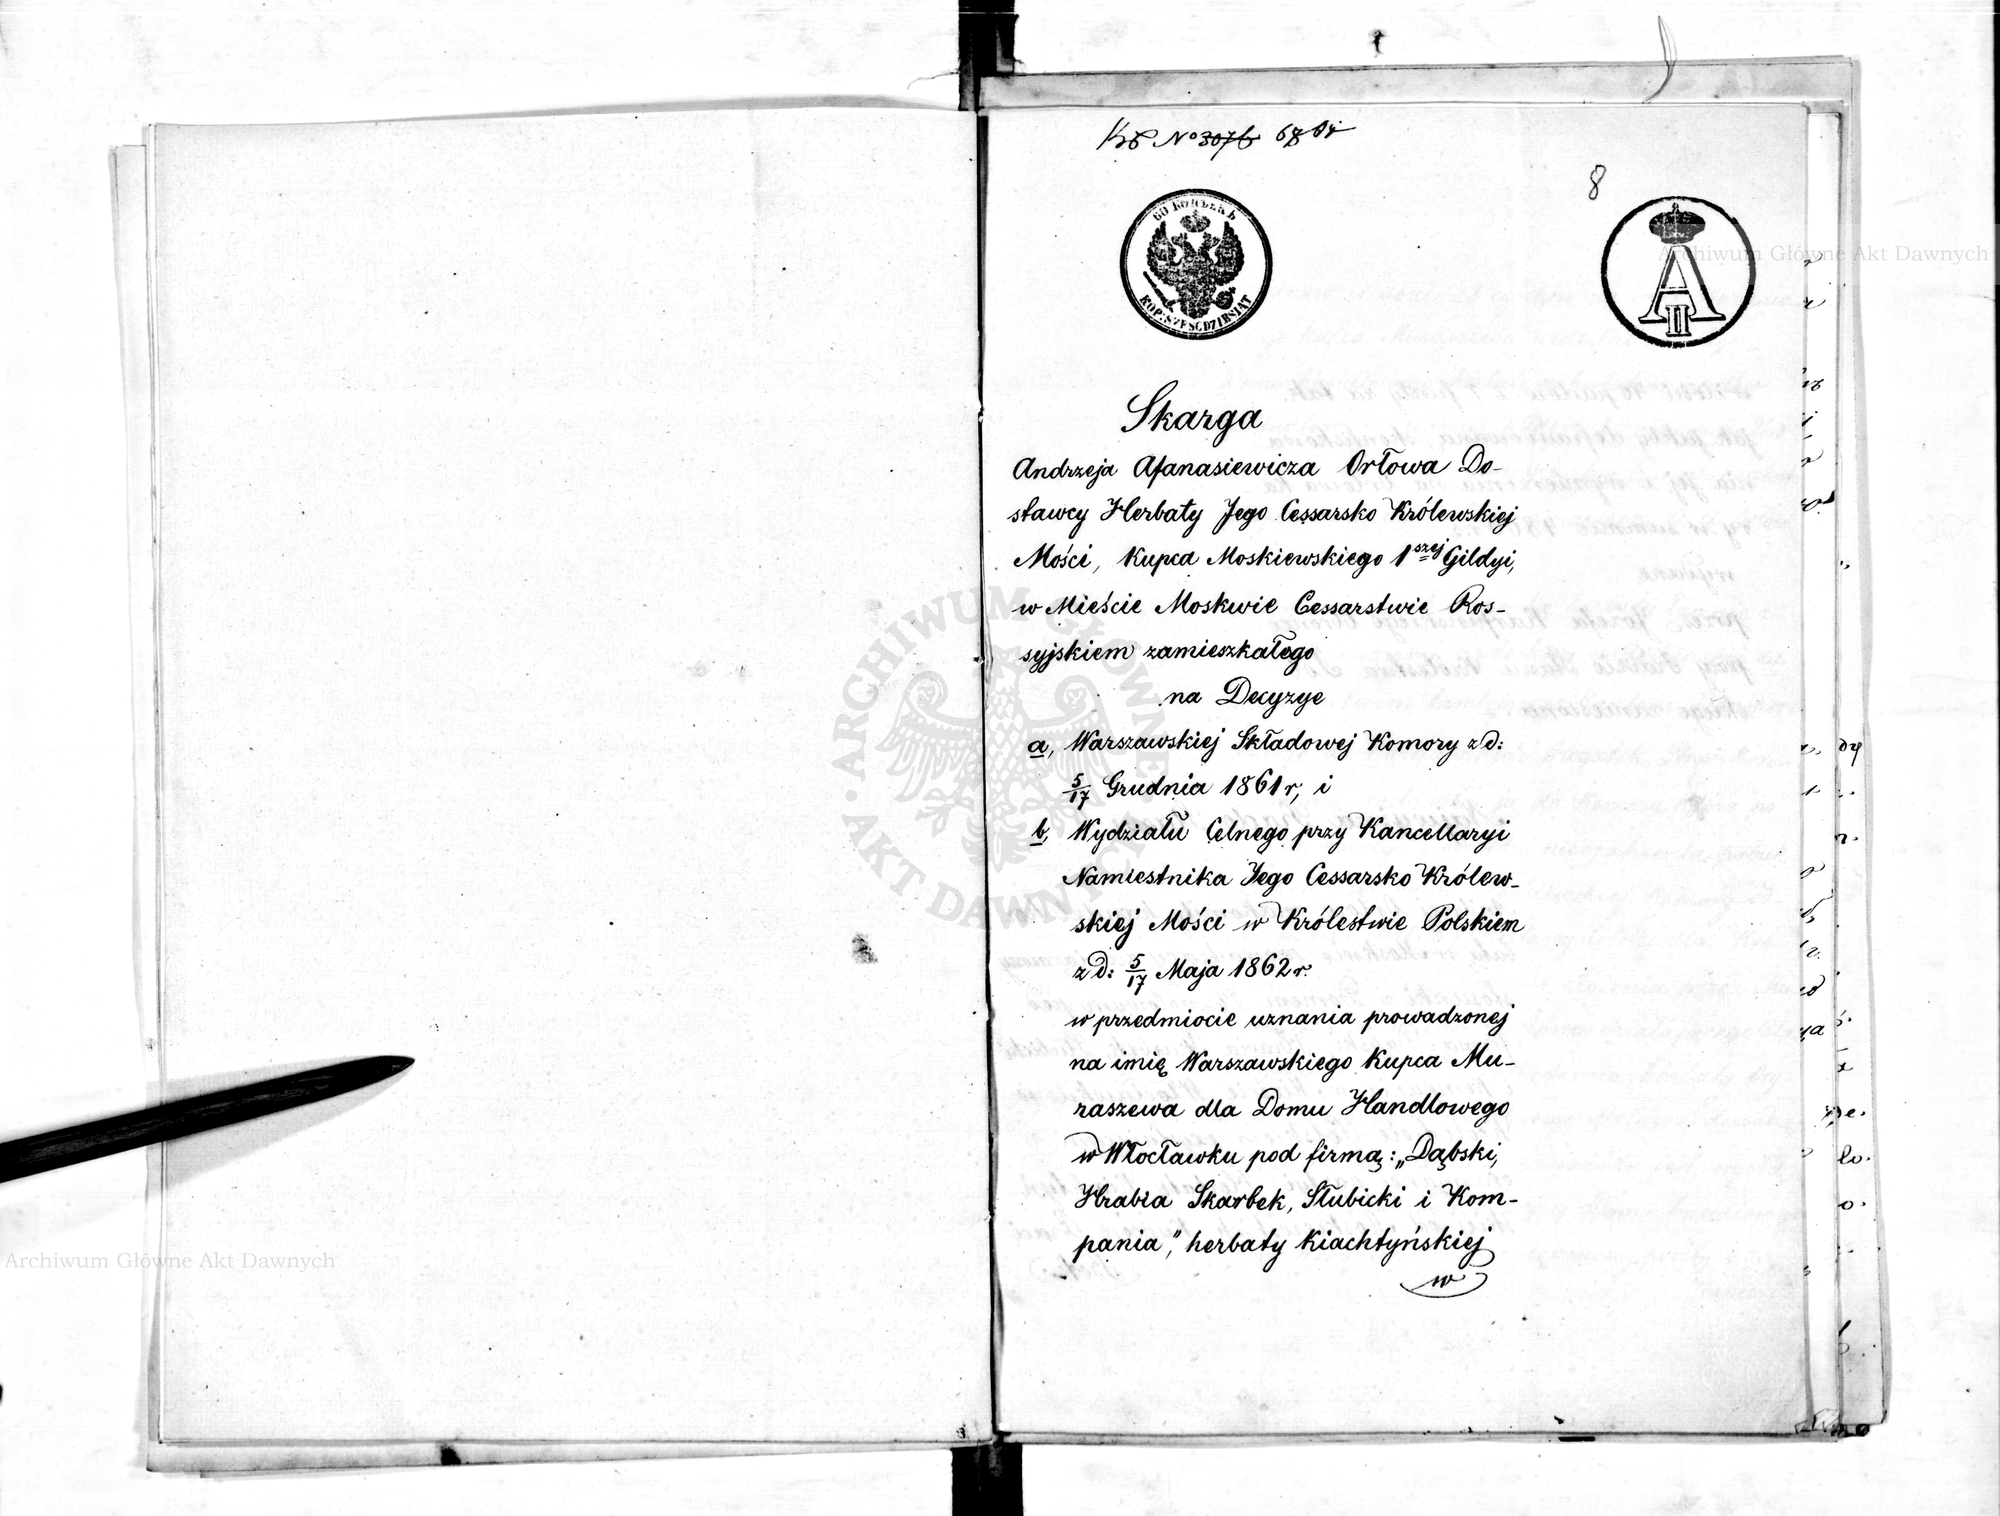 No 3076
8
60 КОПѢЕКЪ
KOP: SZEŚĆDZIESIĄT
A
II
Skarga
Andrzeja Afanasiewicza Orłowa Do-
stawcy Herbaty Jego Cessarsko Królewskiej
Mości, Kupca Moskiewskiego 1szej Gildyi,
w Mieście Moskwie Cessarstwie Ros-
syjskiem zamieszkałego
na Decyzye
a, Warszawskiej Składowej Komory z d:
5/17 Grudnia 1861 r, i
b, Wydziału Celnego przy Kancellaryi
Namiestnika Jego Cessarsko Królew-
skiej Mości w Królestwie Polskiem
z d: 5/17 Maja 1862 r.
w przedmiocie uznania prowadzonej
na imię Warszawskiego Kupca Mu-
raszewa dla Domu Handlowego
w Włocławku pod firmą: „Dąbski,
Hrabia Skarbek, Słubicki i Kom-
pania," herbaty Kiachtyńskiej
w
Archiwum Główne Akt Dawnych
ARCHIWUM GŁÓWNE AKT DAWNYCH
Archiwum Główne Akt Dawnych